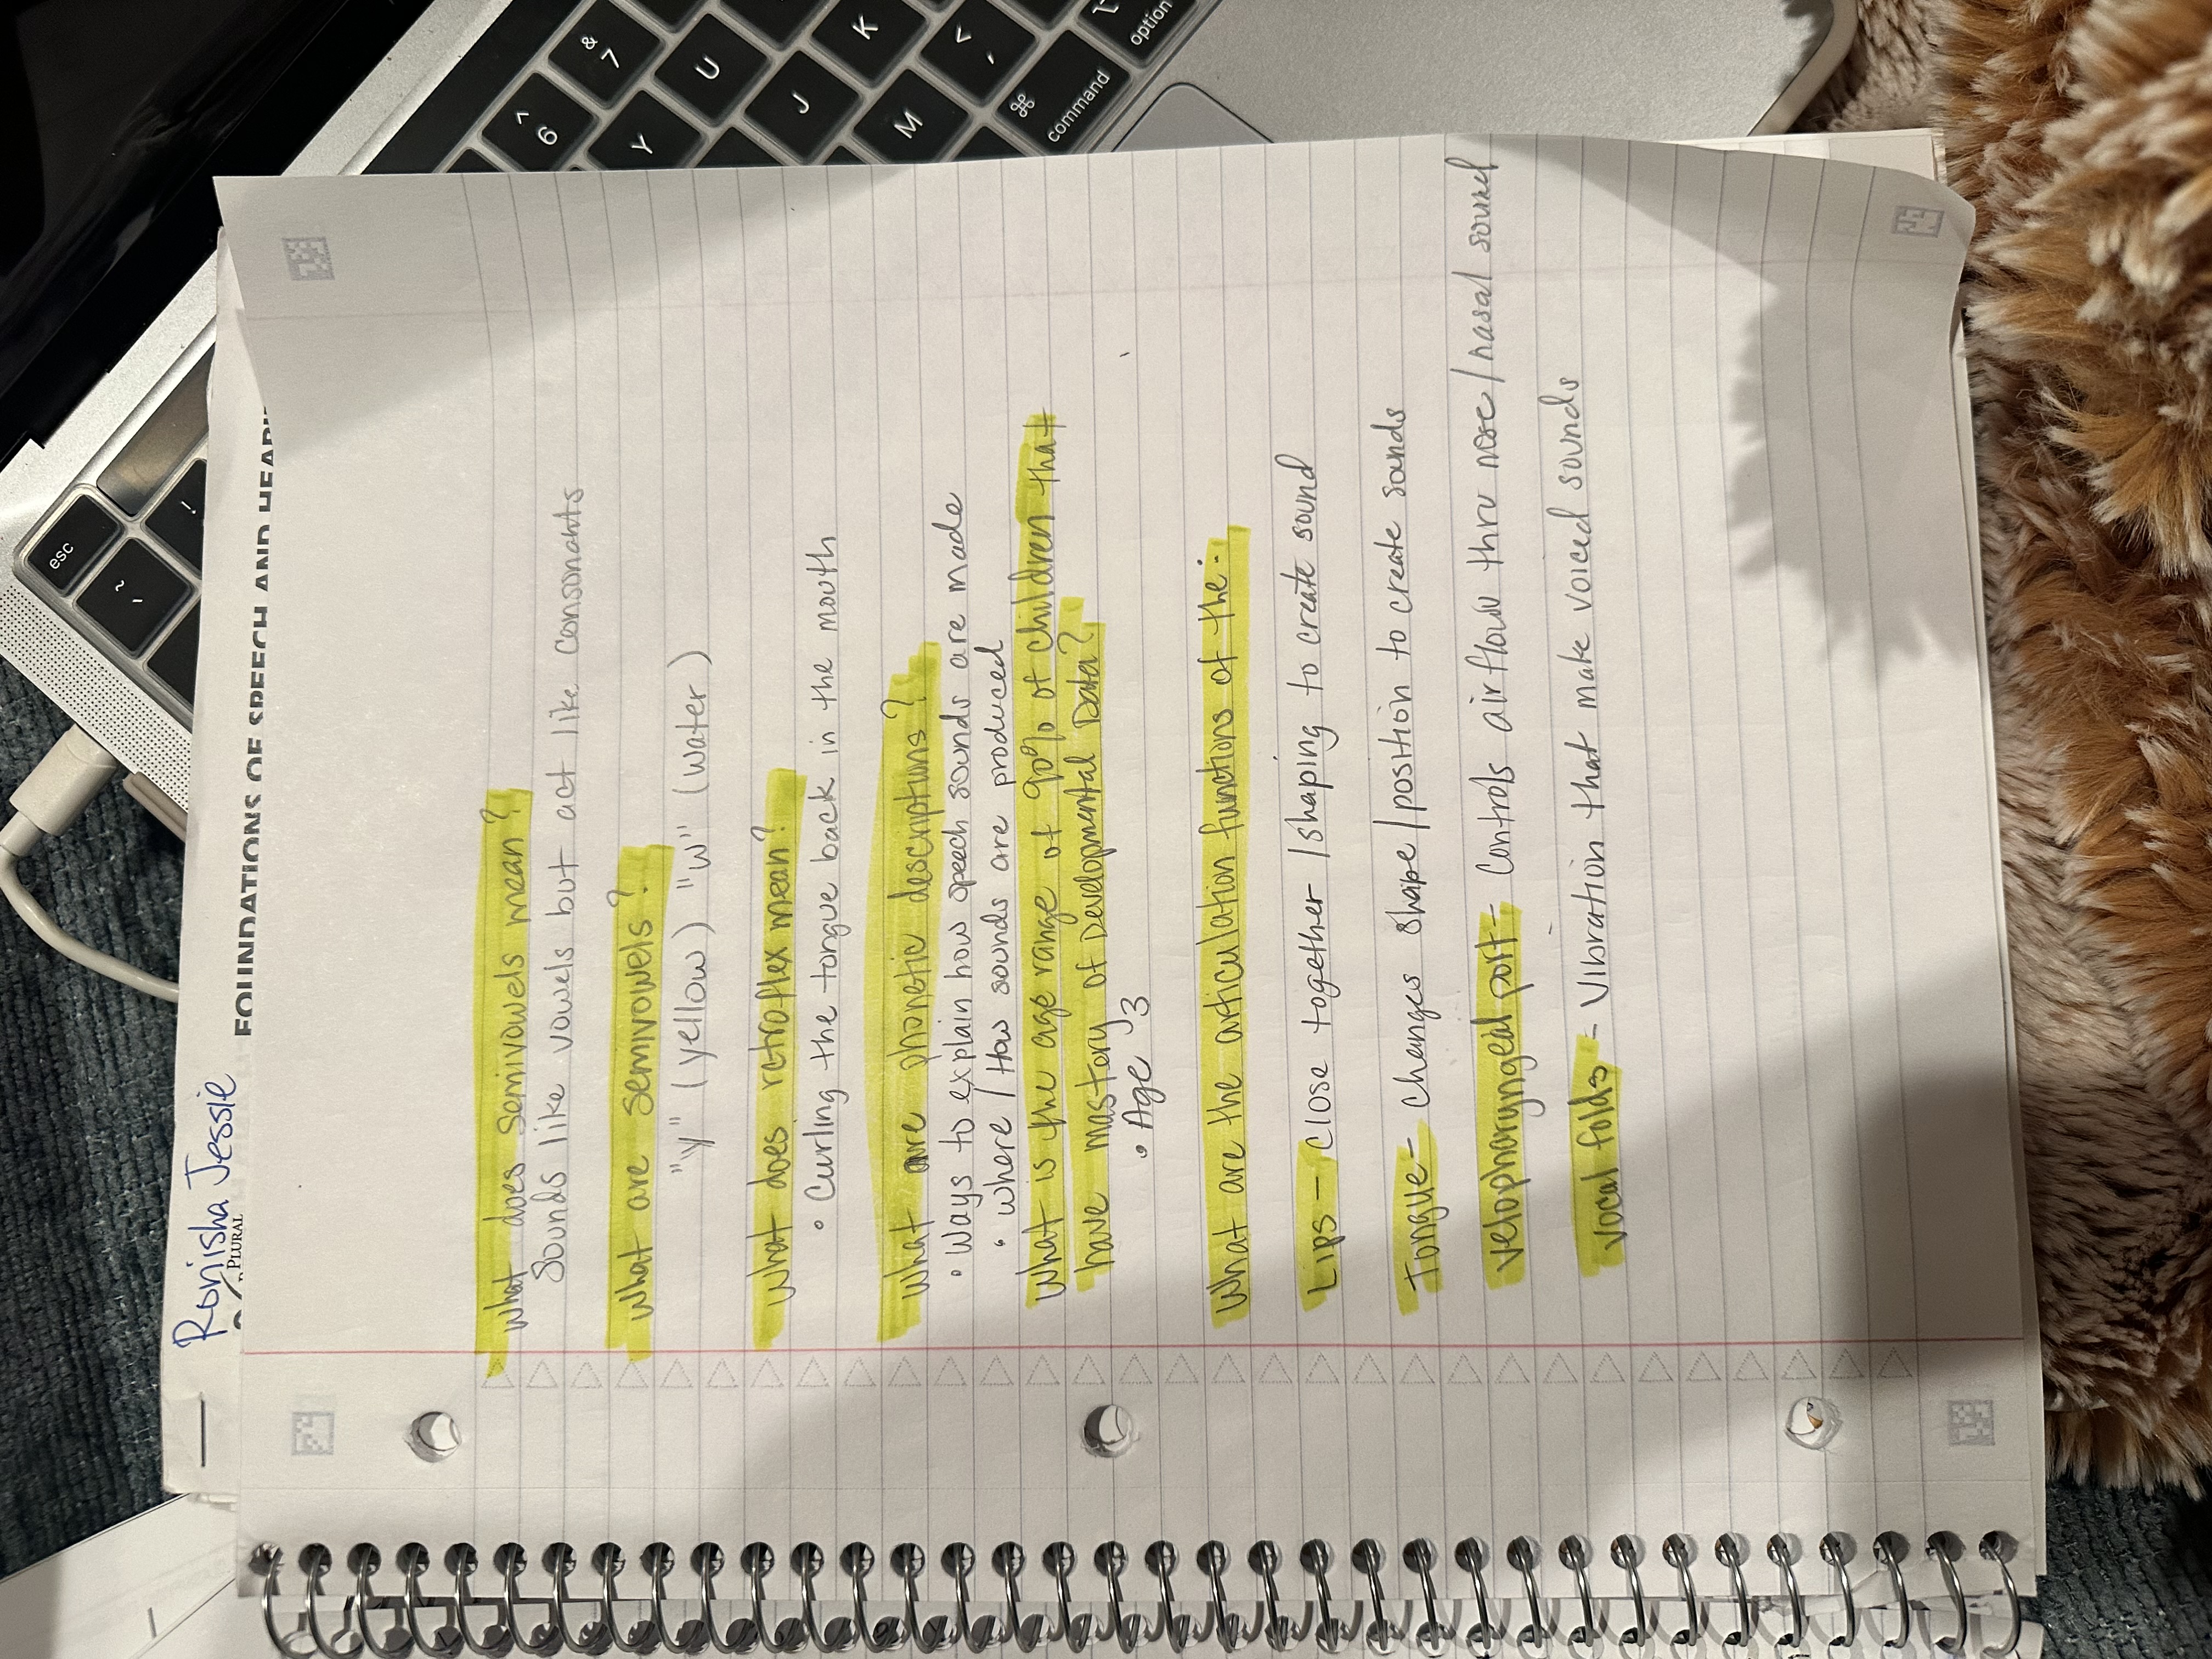 Ronisha Jessie
PLURAL
FOUNDATIONS OF SPEECH AND HEARI
What does semivowels mean?
Sounds like vowels but act like consonants
What are semivowels?
"y" (yellow) "w" (water)
What does retroflex mean?
• Curling the tongue back in the mouth
What are phonetic descriptions?
• Ways to explain how speech sounds are made
• where / How sounds are produced
What is the age range of 90% of children that
have mastery of Developmental Data?
• Age 3
What are the articulation functions of the:
Lips - Close together / shaping to create sound
Tongue - changes shape / position to create sounds
velopharyngeal port - Controls airflow thru nose / nasal sound
vocal folds - Vibration that make voiced sounds
esc
~
`
!
^
6
&
7
Y
U
J
K
M
<
,
⌘
command
option